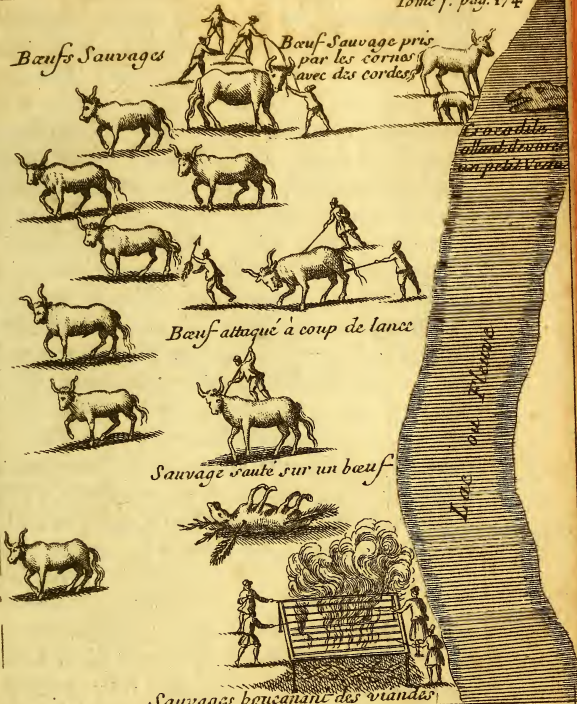 Tome 1. pag. 174
Bœufs Sauvages
Bœuf Sauvage pris
par les cornes
avec des cordes
Crocodile
allant devorer
un petit Veau
Bœuf attaqué à coup de lance
Lac ou Fleuve
Sauvage sauté sur un bœuf
Sauvages boucanant des viandes